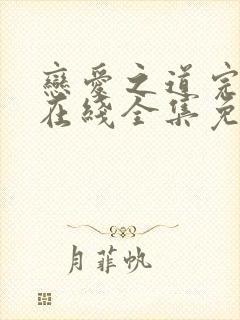 戀愛之道完
在綫全集免
月菲帆